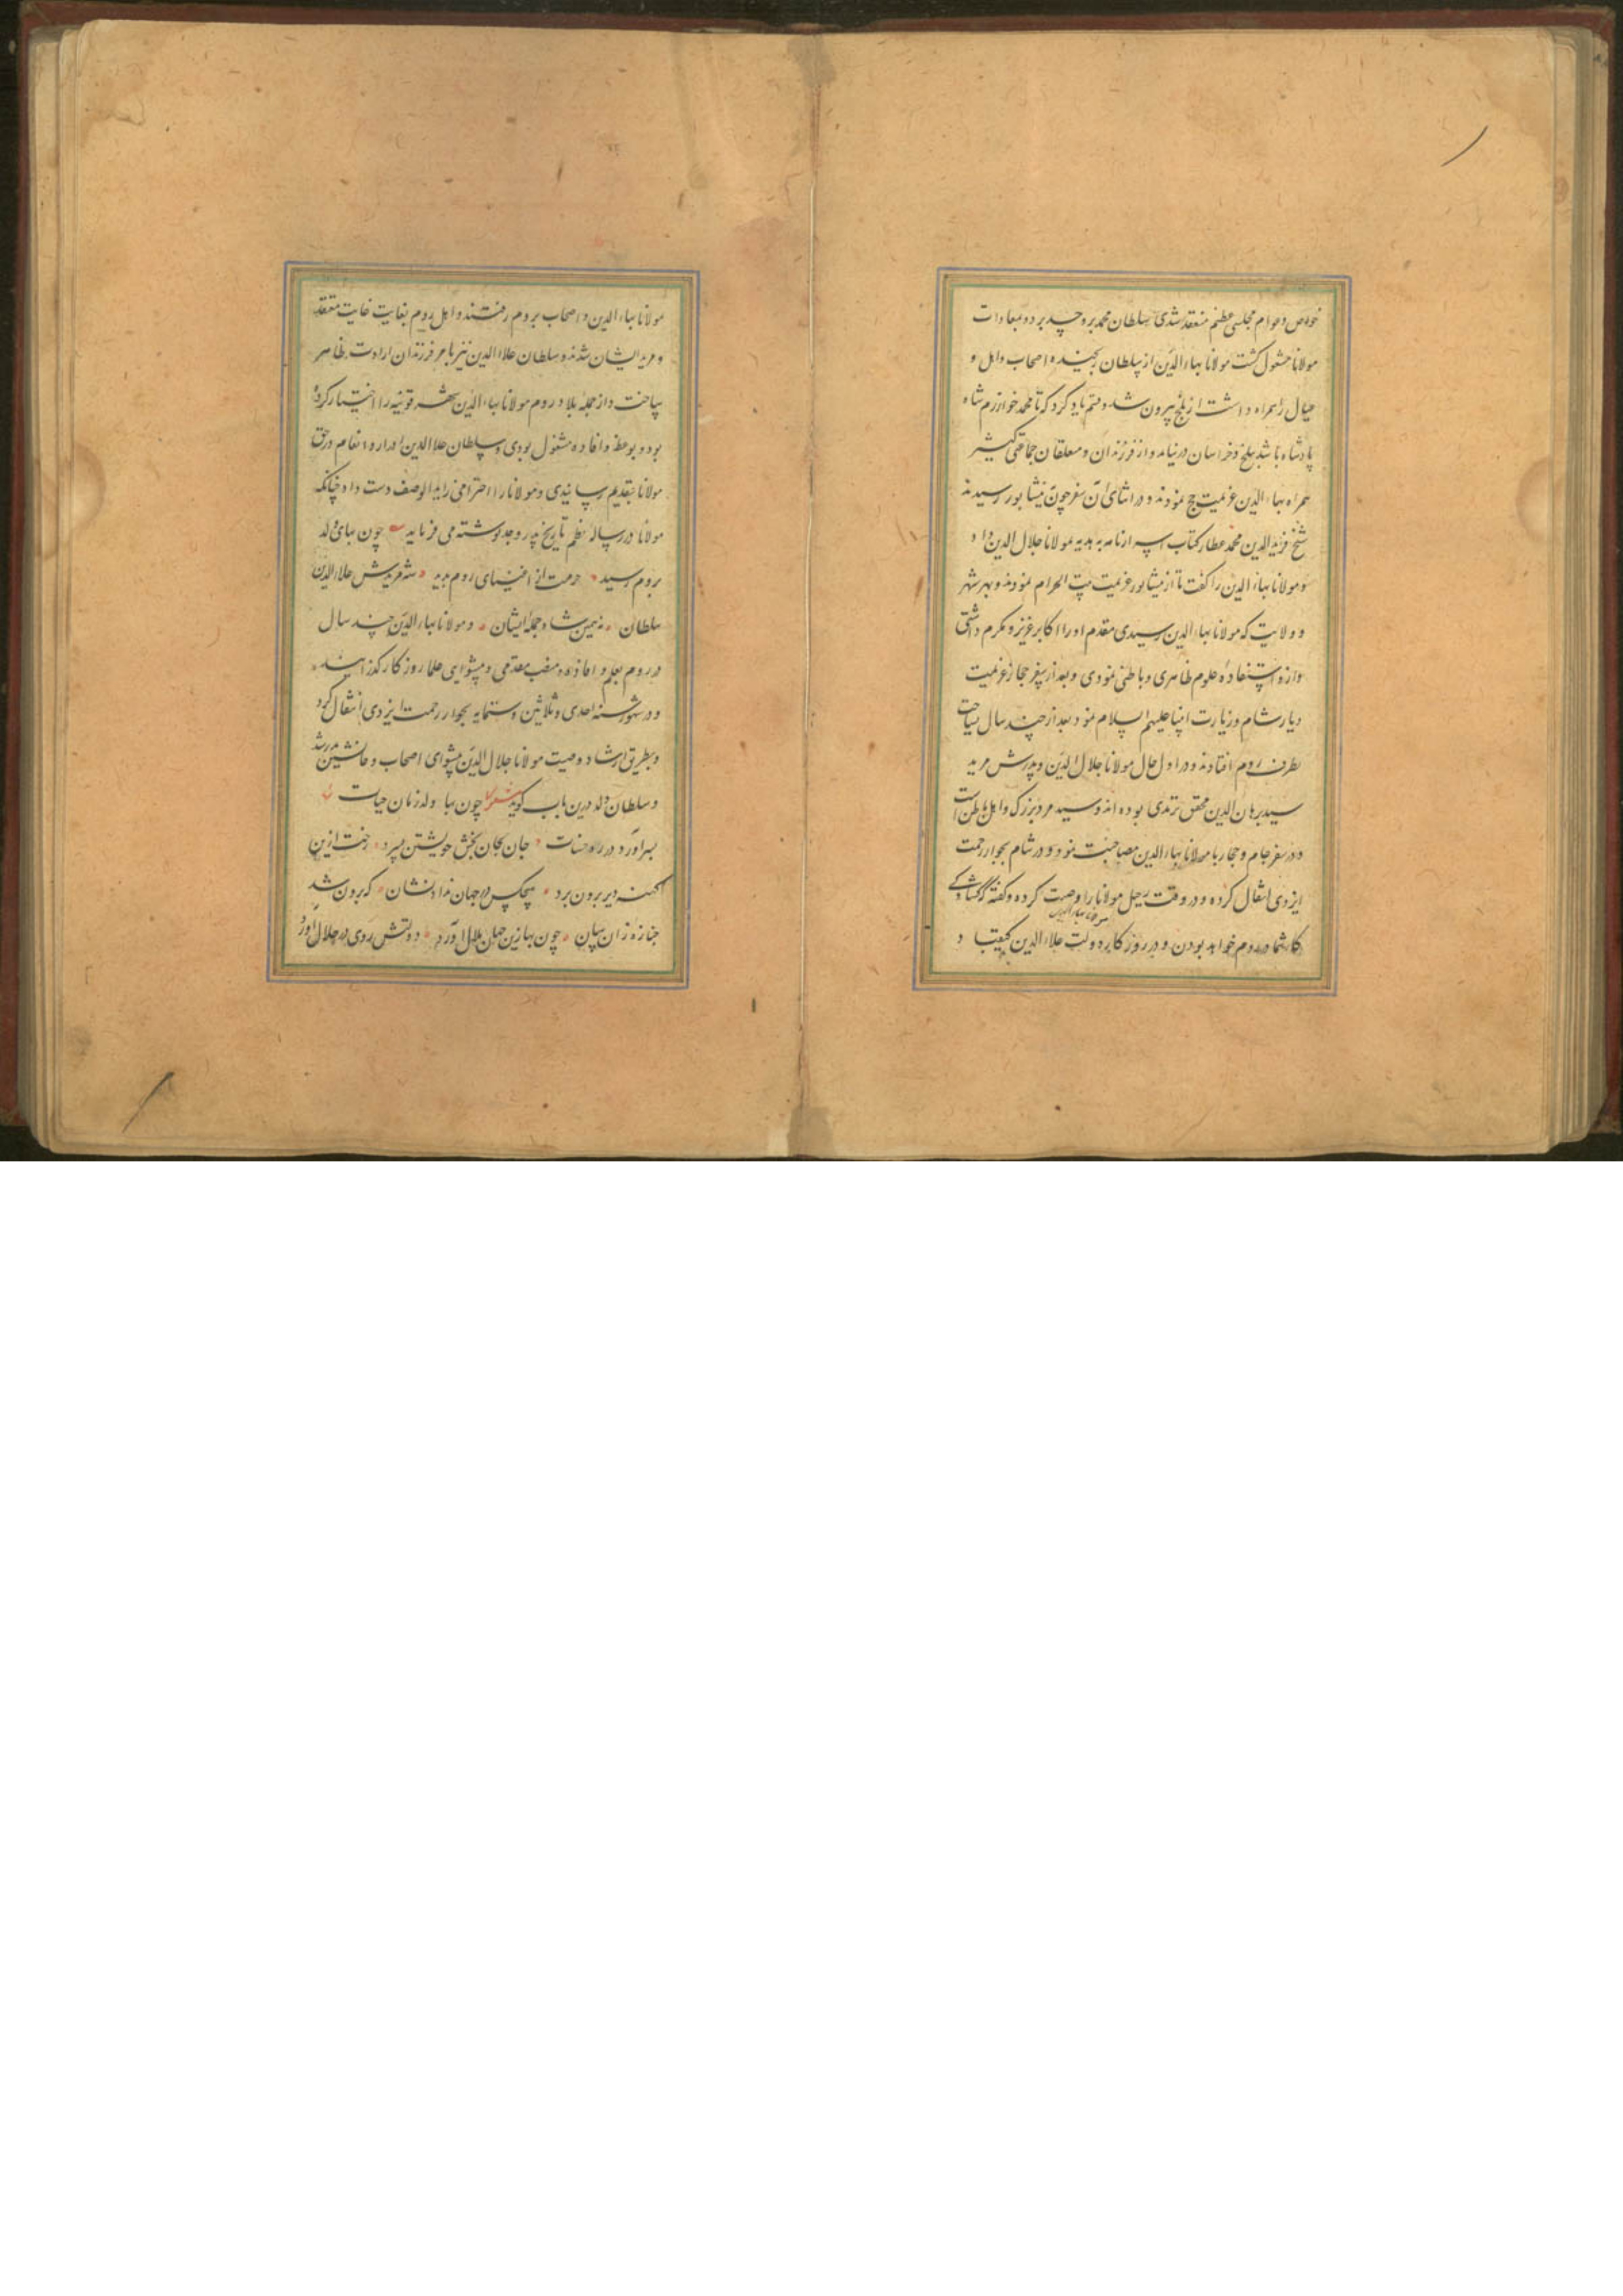 خواص و عوام مجلسی عظیم منعقد شدی سلطان محمد برو حسد برد و بمعادات
مولانا مشغول گشت مولانا بهاء الدین از سلطان رنجیده اصحاب و اهل و
عیال را همراه داشت از بلخ بیرون شد و قسم یاد کرد که تا محمد خوارزم شاه
پادشاه باشد ببلخ و خراسان در نیاید و از فرزندان و متعلقان جماعتی کثیر
همراه بهاء الدین عزیمت حج نمودند و در اثنای آن سفر چون بنیشابور رسیدند
شیخ فرید الدین محمد عطار کتاب اسرارنامه به هدیه بمولانا جلال الدین داد
و مولانا بهاء الدین را گفت تا از نیشابور عزیمت بیت الحرام نمودند و بهر شهر
و ولایت که مولانا بهاء الدین رسیدی مقدم او را اکابر عزیز و مکرم داشتی
و ازو استفاده علوم ظاهری و باطنی نمودی و بعد از سفر حجاز عزیمت
دیار شام و زیارت انبیا علیهم السلام نمود بعد از چند سال سیاحت
بطرف روم افتادند و در اول حال مولانا جلال الدین و پدرش مرید
سید برهان الدین محقق ترمدی بوده اند و سید مرد بزرگ و اهل باطن است
و در سفر شام و حجاز با مولانا بهاء الدین مصاحبت نمود و در شام بجوار رحمت
ایزدی انتقال کرده و در وقت رحیل مولانا را وصیت کرده و گفته که گشاد
کار شما در روم خواهد بودن و در روزگار دولت علاء الدین کیقباد
مولانا بهاء الدین و اصحاب بروم رفتند و اهل روم بغایت غایت معتقد
و مرید ایشان شدند و سلطان علاء الدین نیز با هر فرزندان ارادت ظاهر
ساخت و از جمله بلاد روم مولانا بهاء الدین شهر قونیه را اختیار کرده
بود و بوعظ و افاده مشغول بودی و سلطان علاء الدین ادرار و انعام در حق
مولانا بتقدیم رسانیدی و مولانا را احترامی زاید الوصف دست داد چنانکه
مولانا در رساله نظم تاریخ پدر و جد نوشته می فرماید چون بهای ولد
بروم رسید حرمت از اغنیای روم بدید شد مریدش علاء الدین
سلطان نه همین شاه جمله ایشان و مولانا بهاء الدین چند سال
در روم بعلم و افاده و منصب مقدمی و پیشوایی علما روزگار گذرانید
و در شهور سنه احدی و ثلاثین و ستمایه بجوار رحمت ایزدی انتقال کرد
و بطریق ارشاد و وصیت مولانا جلال الدین پیشوای اصحاب و جانشین پدر شد
و سلطان ولد درین باب گوید شعر چون بها ولد زمان حیات
بسر آورد در ره حسنات جان بجان بخش خویشتن بسپرد رخت ازین
کهنه دیر برون برد هیچکس در جهان نداد نشان که برون شد
جنازه زان سان چون بها زین جهان ملال آورد دولتش روی در جلال آورد